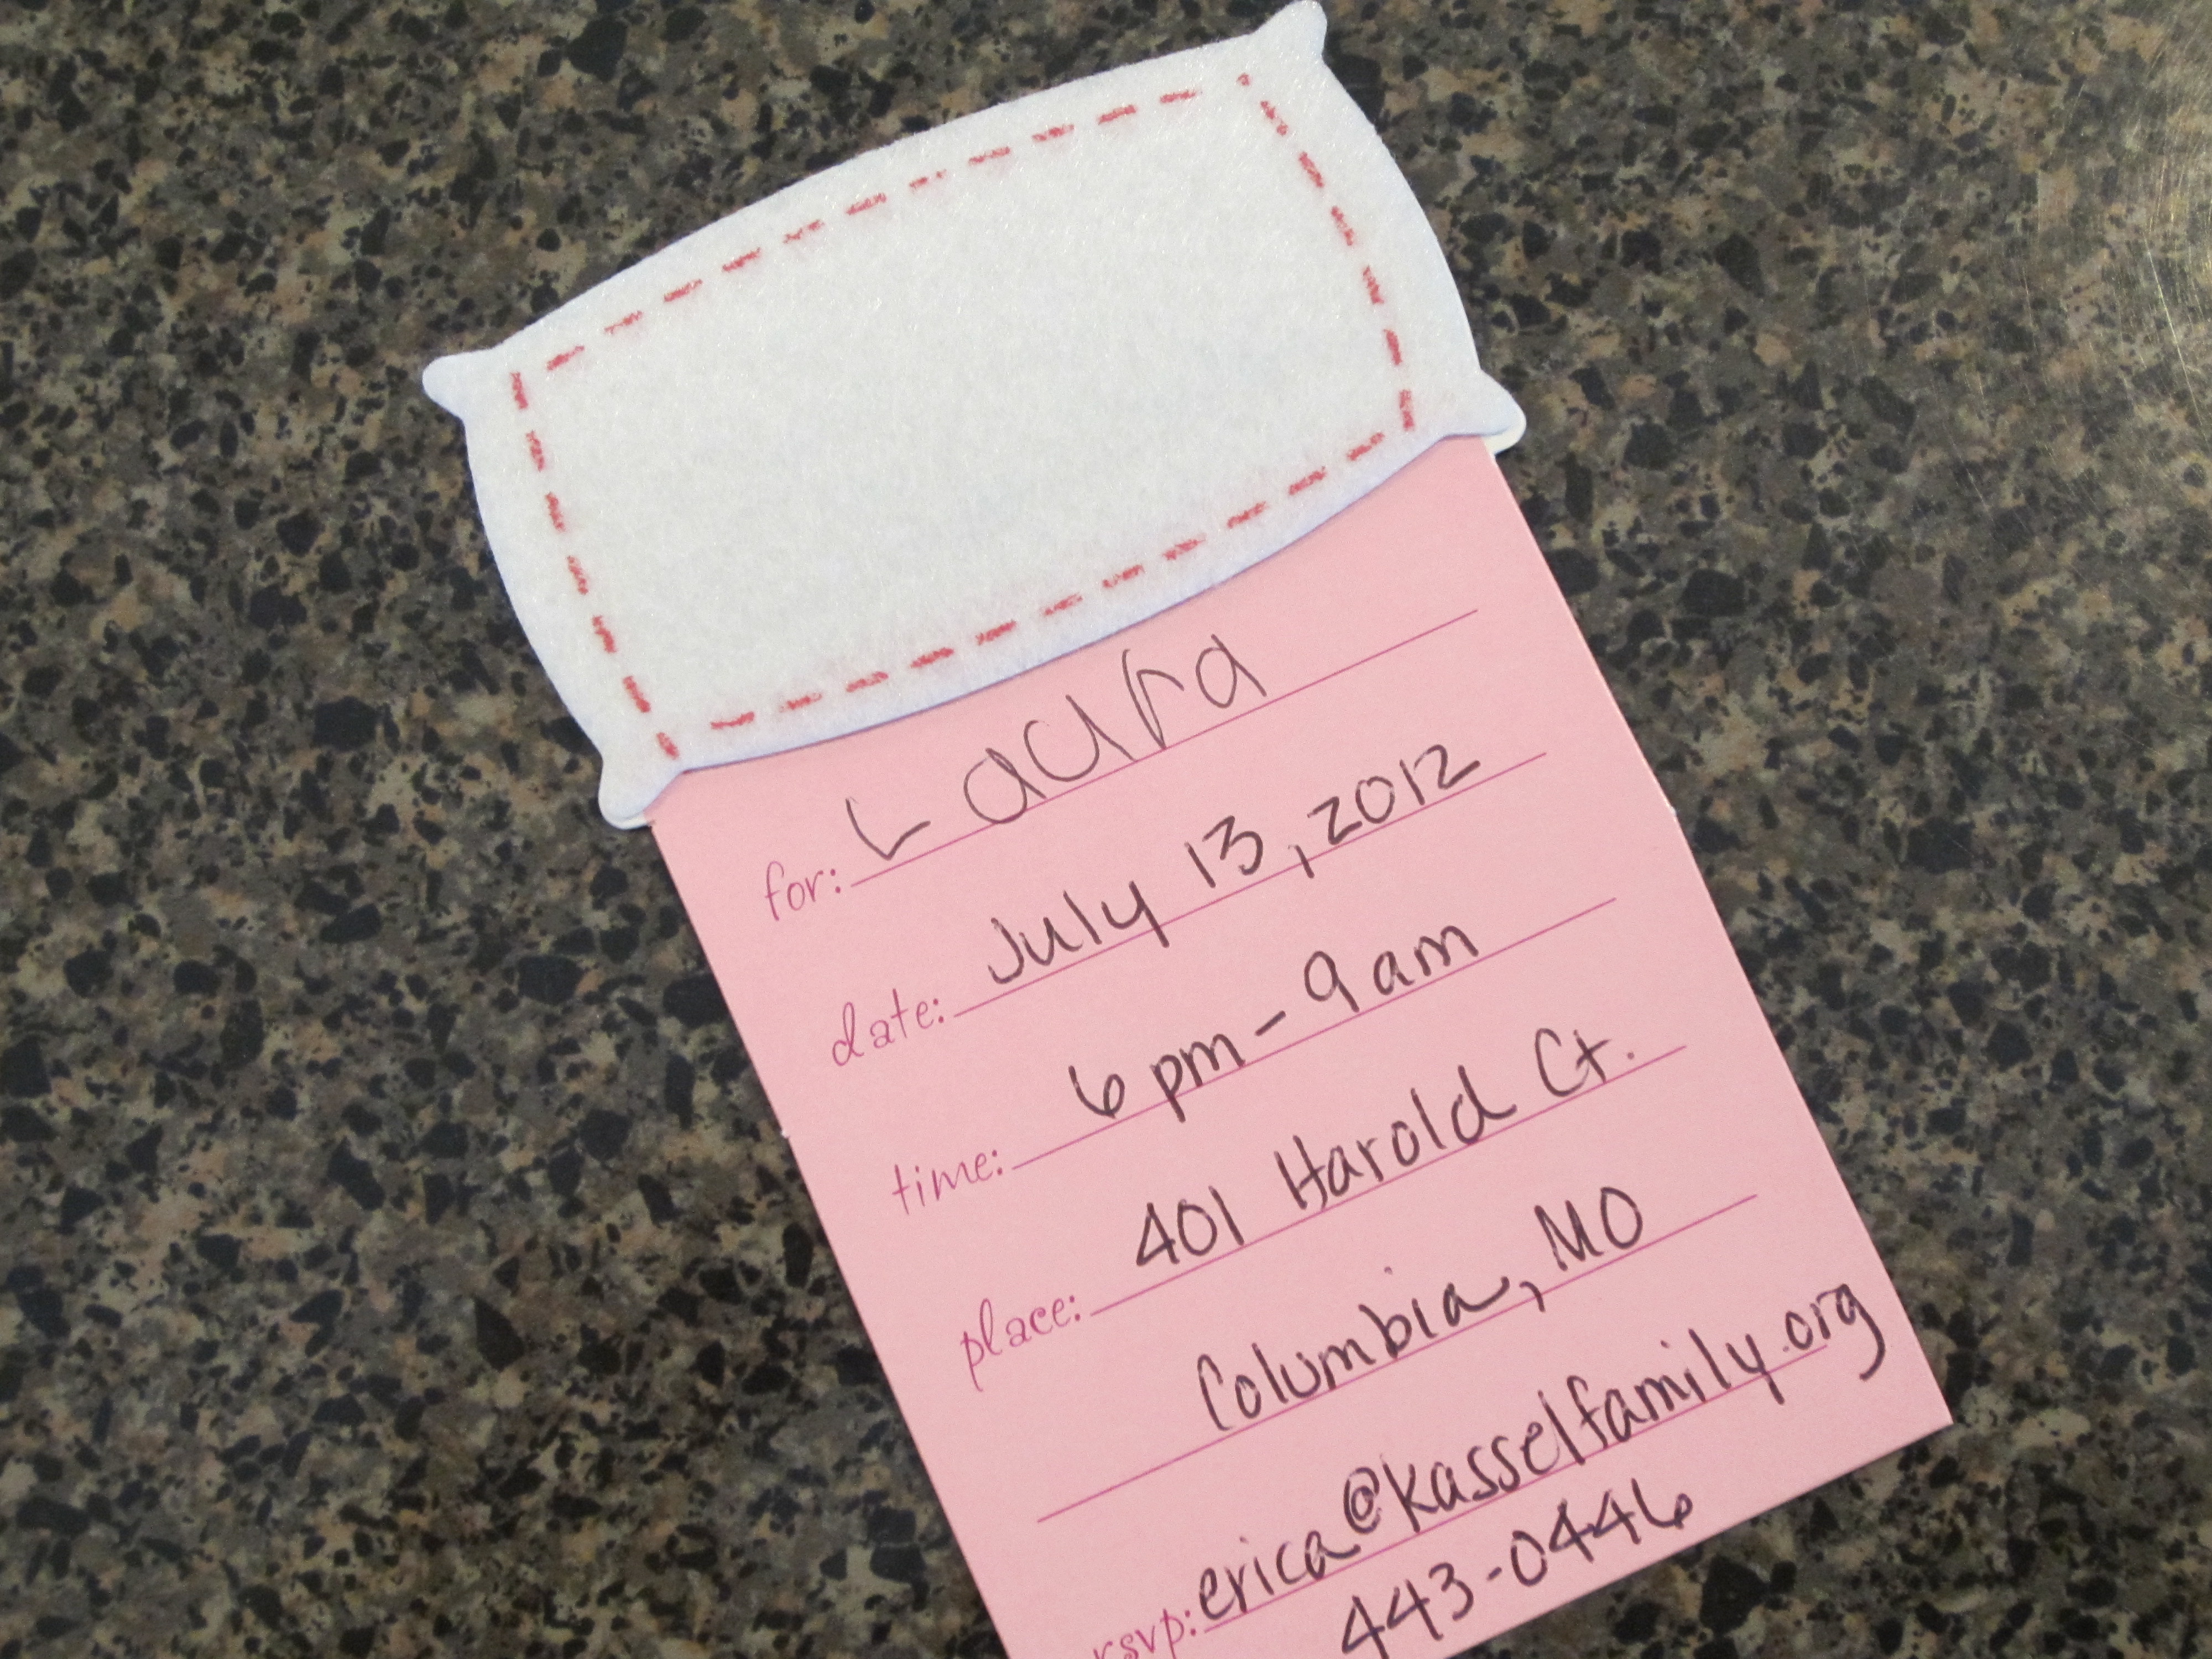 for: Laura
date: July 13, 2012
time: 6 pm - 9 am
place: 401 Harold Ct.
Columbia, MO
rsvp: erica@kasselfamily.org
443-0446